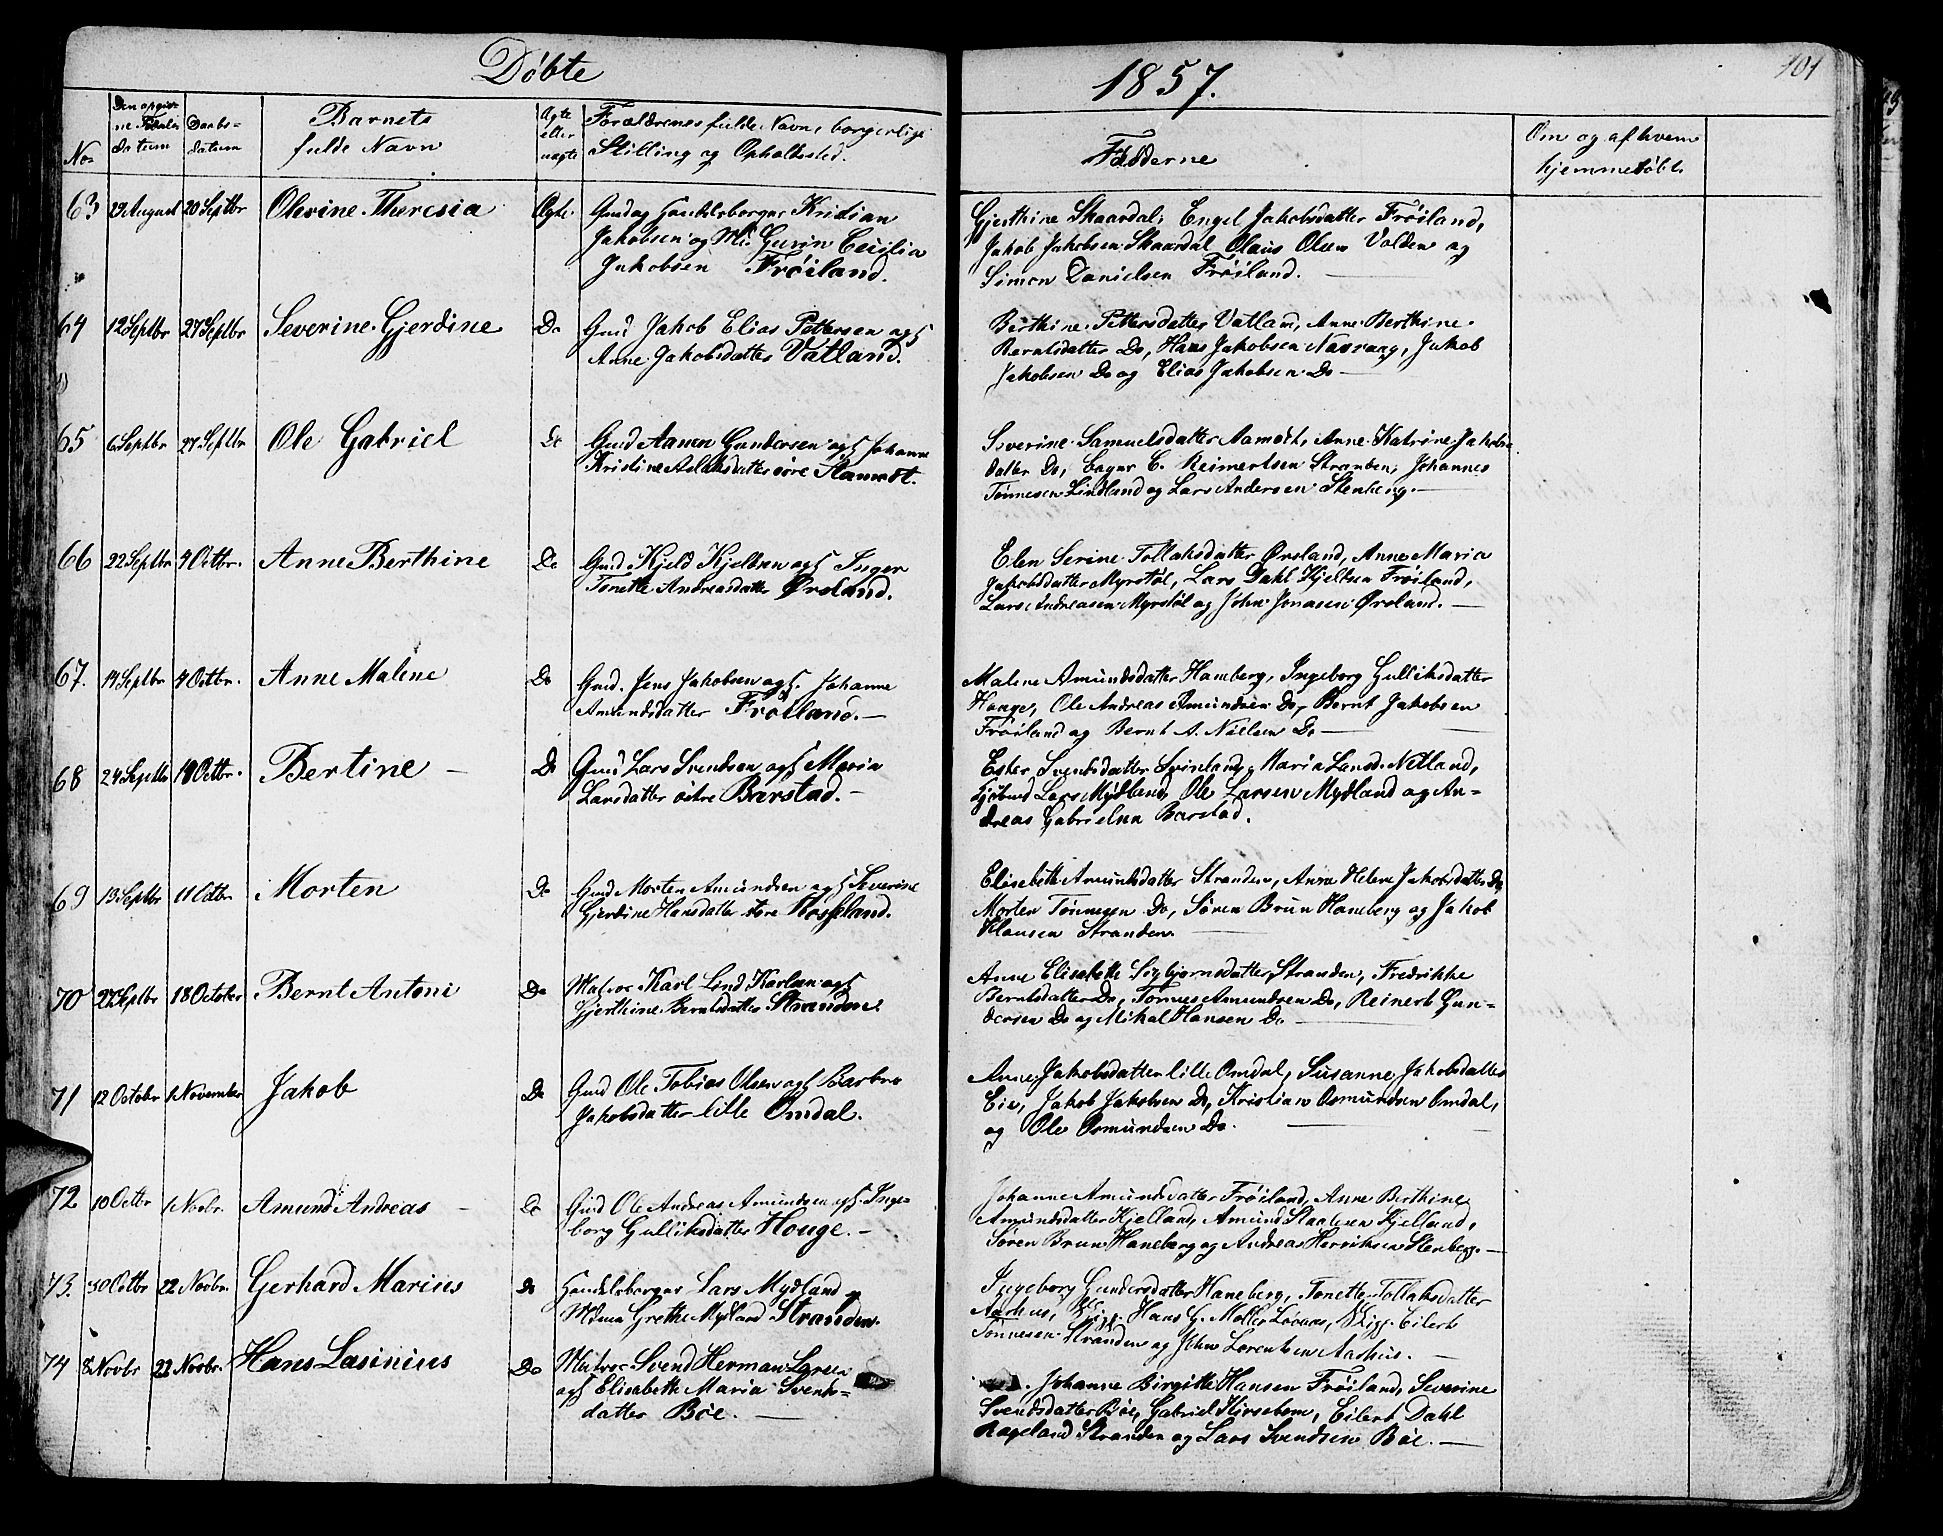 Döbte
1857.
101
No
Den opgivne Fødselsdatum
Daabsdatum
Barnets fulde Navn
Ægte eller uægte
Forældrenes fulde Navn, borgerlige Stilling og Opholdssted.
Fadderne
Om og af hvem hjemmedøbt
63 29 August 20 Septbr Olevine Theresia Ægte Gmd og Handelsborger Kristian
Jakobsen og Md: Gurin Cecilia
Jakobsen Fröiland.
Gjerthine Skaardal, Engel Jakobsdatter Fröiland,
Jakob Jakobsen Skaardal Olaus Olsen Volden og
Simon Danielsen Fröiland.
64 12 Septbr 27 Septbr Severine Gjerdine Do Gmd Jakob Elias Pettersen og
Anne Jakobsdatter Vatland.
Berthine Pettersdatter Vatland, Anne Berthine
Berntsdatter Do, Hans Jakobsen Jakob
Jakobsen Do og Elias Jakobsen Do
65 6 Septbr 27 Septbr Ole Gabriel Do Gmd Aanen Gundersen og Johanne
Kristine Aslaksdatter øvre Aamodt.
Severine Samuelsdatter Aamodt, Anne Katrine Jakobs
datter Do, C. Reimertsen Stranden, Johannes
Tønnesen Lindland og Lars Andersen Stenberg.
66 22 Septbr 4 Octbr. Anne Berthine Do Gmd Kjeld Kjeldsen og Inger
Tonette Andreasdatter Ørsland.
Elen Serine Tollaksdatter Ørsland, Anne Maria
Jakobsdatter Myrstøl, Lars Dahl Kjeldsen Fröiland,
Lars Andreasen Myrstøl og John Jonasen Ørsland.
67. 14 Septbr 4 Octbr. Anne Malene Do Gmd. Jens Jakobsen og Johanne
Amundsdatter Fröiland.
Malene Amundsdatter Haneberg, Ingeborg Gulliksdatter
Houge, Ole Andreas Amundsen Do, Bernt Jakobsen
Fröiland og Bernt A. Nielsen Do
68 24 Septbr Octbr. Bertine Do Gmd Lars Svendsen og Maria
Larsdatter östre Barstad.
Ester Svendsdatter Svinland, Maria Larsd. Netland,
Sjöbmd Lars Mydland, Ole Larsen Mydland og An-
dreas Gabrielsen Barstad.
69 13 Septbr 11 Octbr. Morten Do Gmd Morten Amundsen og Severine
Gjerdine Hansdatter store Rosseland.
Elisebeth Amundsdatter Stranden, Anne Helene Jakobsdatter Do
Morten Tönnesen Do, Sören Brun Haneberg og Jakob
Klausen Stranden.
70 27 Septbr 18 October Bernt Antoni Do Matros Karl Lind Karlsen og
Gjerthine Berntsdatter Stranden
Anne Elisabeth Sigbjornsdatter Stranden, Fredrikke
Berntsdatter Do, Tönnes Amundsen Do, Reinert Gun-
dersen Do og Mikal Hansen Do
71 12 October 1 November Jakob Do Gmd Ole Tobias Olsen og Barbro
Jakobsdatter lille Omdal.
Anne Jakobsdatter lille Omdal, Susanne Jakobsdatter
Eie, Jakob Jakobsen Do, Kristian Osmundsen Omdal,
og Ole Osmundsen Do.
72 10 Octbr 1 Novbr. Amund Andreas Do Gmd Ole Andreas Amundsen og Inge-
borg Gulliksdatter Houge.
Johanne Amundsdatter Fröiland, Anne Berthine
Amundsdatter Kjelland, Amund Kjelland,
Sören Brun Haneberg og Andreas Henriksen Stenberg.
73. 30 Octbr 22 Novbr. Gerhard Marius Do Handelsborger Lars Mydland og
Grethe Mydland Stranden.
Ingeborg Gundersdatter Haneberg, Tonette Tollaksdatter
Aarhus, Hans G. Møller Eilert
Tönnesen Stranden og John Lorentsen Aarhus.
74 8 Novbr 22 Novbr. Hans Lasinius Do Matros Svend Herman Larsen
og Elisabeth Maria Svends-
datter Böe.
Johanne Birgitte Hansen Fröiland, Severine
Svendsdatter Böe, Gabriel Kirsebom, Eilert Dahl
Rageland Stranden og Lars Svendsen Böe.